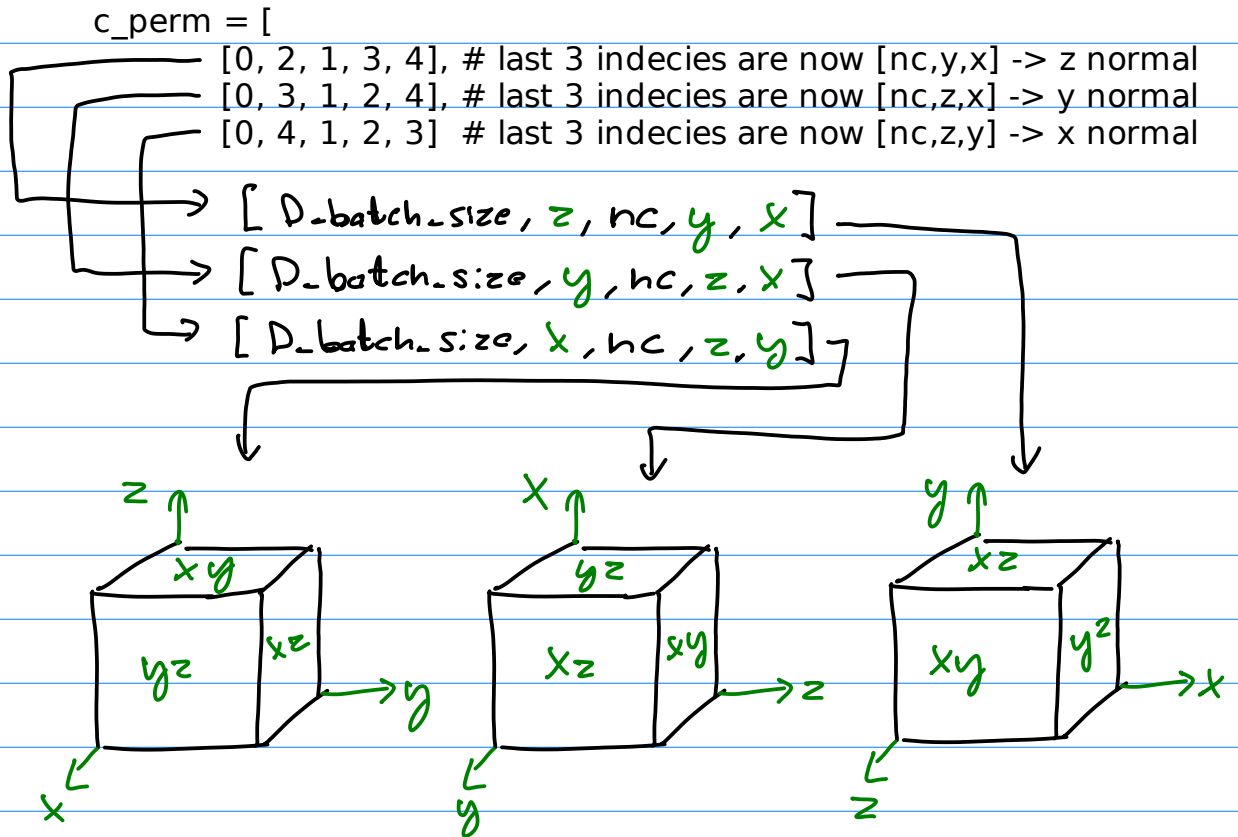 c_perm = [
[0, 2, 1, 3, 4], # last 3 indecies are now [nc,y,x] -> z normal
[0, 3, 1, 2, 4], # last 3 indecies are now [nc,z,x] -> y normal
[0, 4, 1, 2, 3] # last 3 indecies are now [nc,z,y] -> x normal
[ D_batch_size, z, nc, y, x ]
[ D_batch_size, y, nc, z, x ]
[ D_batch_size, x, nc, z, y ]
z
xy
yz
xz
y
x
x
yz
xz
xy
z
y
y
xz
xy
yz
x
z